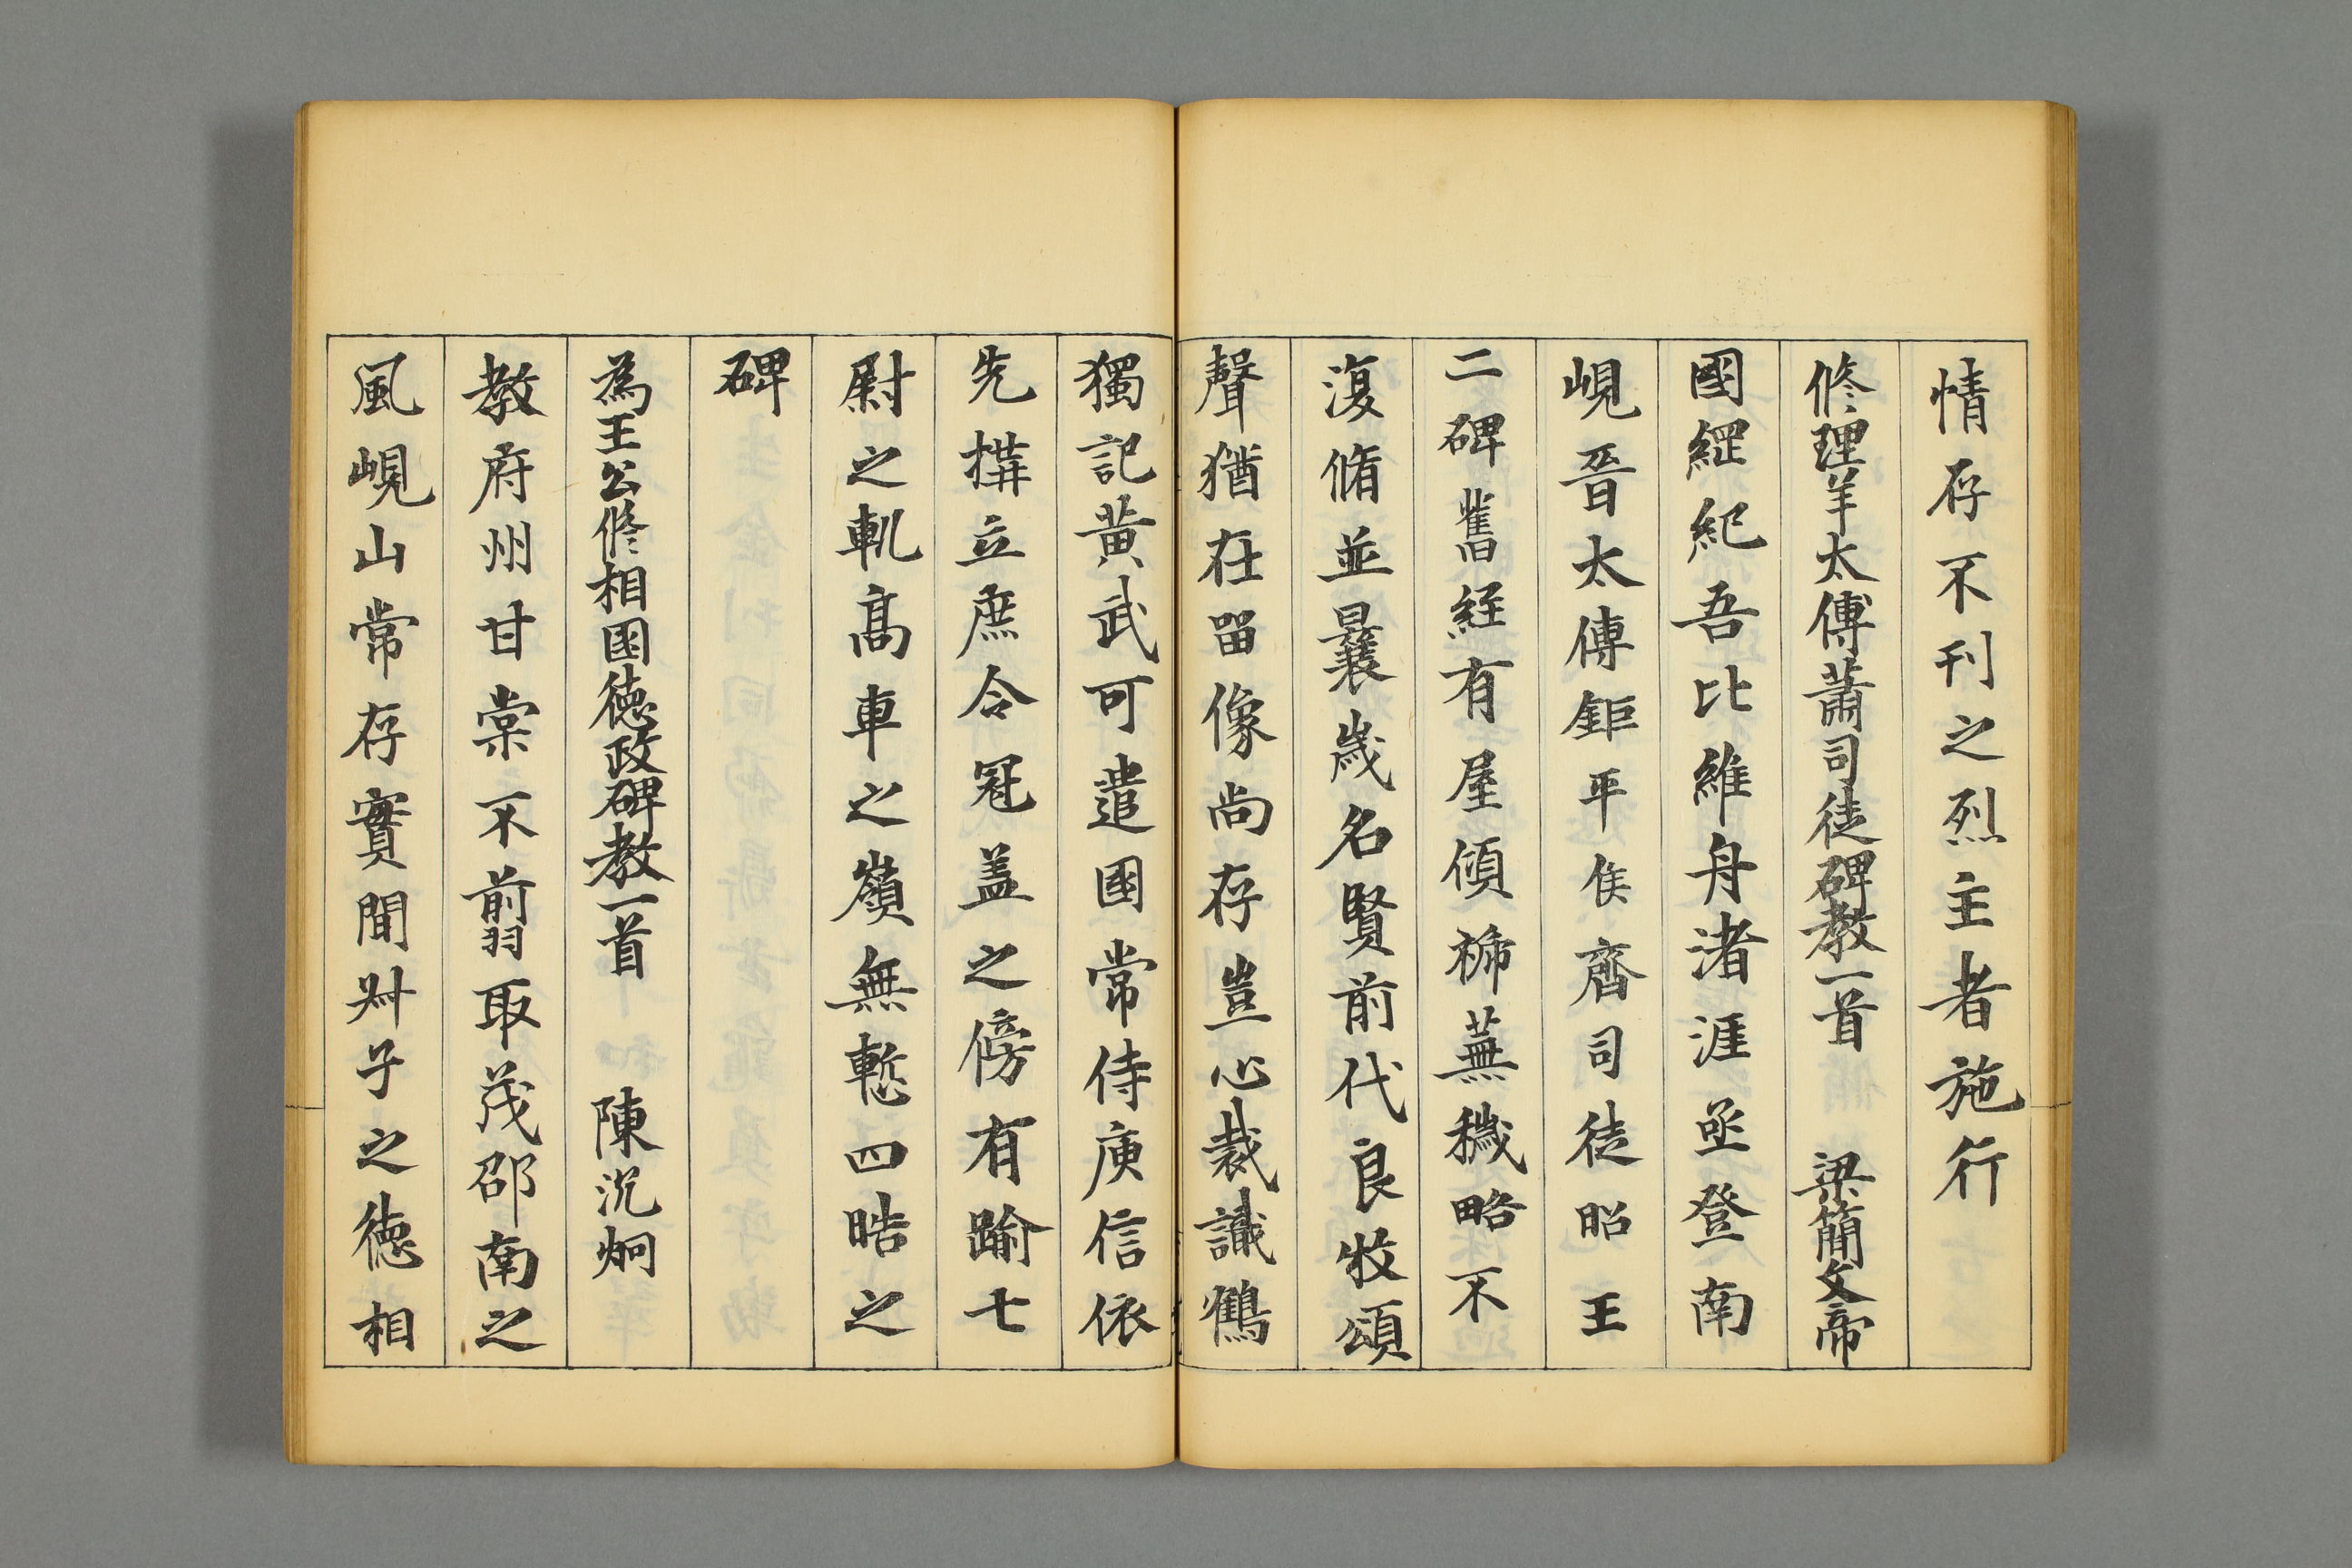 情存不刊之烈主者施行
修理羊太傅蕭司徒碑教一首　梁簡文帝
國經紀吾比維舟渚涯亟登南
峴晉太傅鉅平侯齊司徒昭王
二碑舊經有屋傾褫蕪穢略不
復脩並曩歲名賢前代良牧頌
聲猶在留像尚存豈心裁識鶴
獨記黃武可遣國常侍庾信依
先搆立庶令冠盖之傍有踰七
尉之軌高車之嶺無慙四晧之
碑
為王公修相国徳政碑教一首　陳沉炯
教府州甘棠不翦取茂邵南之
風峴山常存實聞州子之徳相